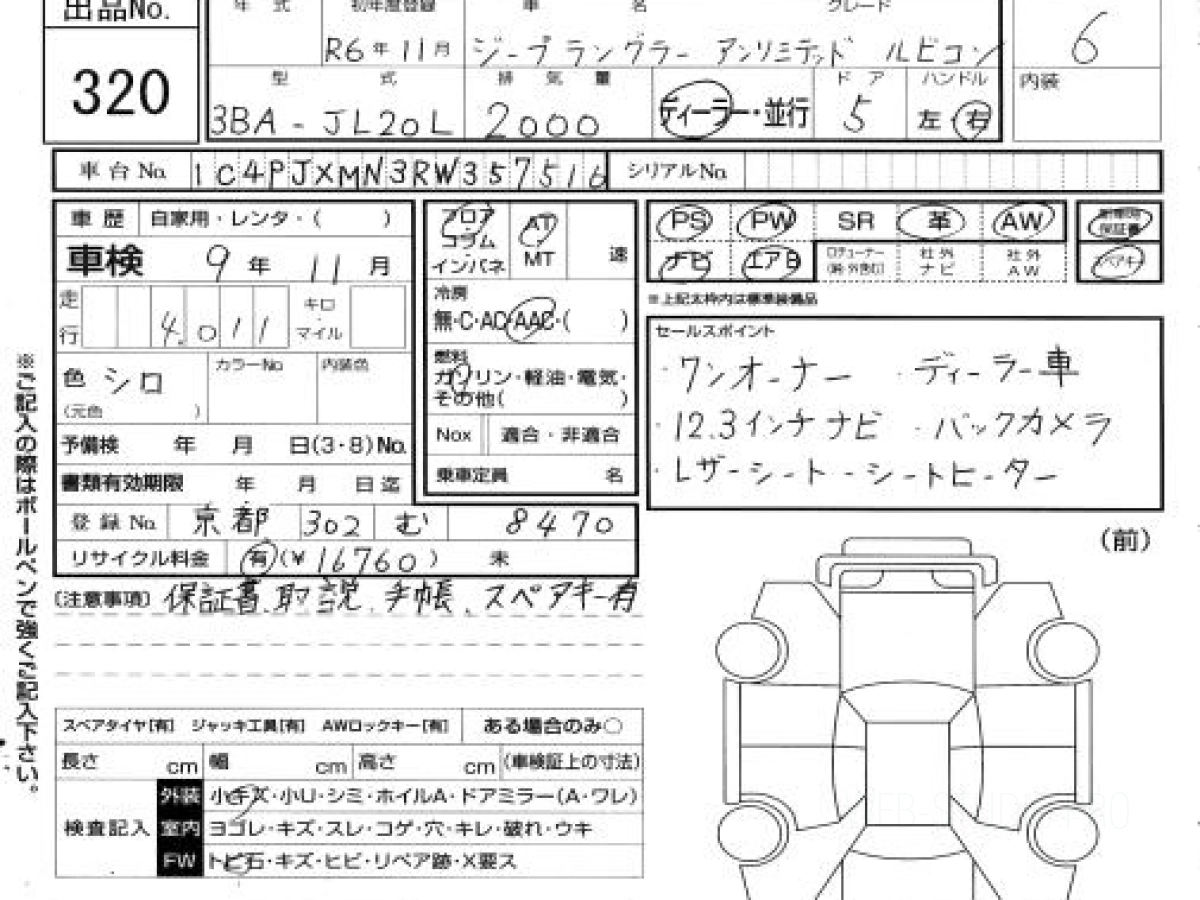 出品No.
320
年 式 初年度登録 車 名 グレード
R6年11月 ジープ ラングラー アンリミテッド ルビコン 6
型 式 排 気 量 ディーラー・並行 ド ア ハンドル 内装
3BA-JL20L 2000 5 左 右
車台No. 1C4PJXMN3RW357516 シリアルNo.
車 歴 自家用・レンタ・( )
フロア コラム インパネ AT MT 速
PS PW SR 革 AW 保証書
車検 9年 11月
ナビ エアB 社外ナビ 社外AW スペアキー
※上記太枠内は標準装備品
走行 4,011 キロ・マイル
冷房
無・C・AC・AAC・( )
色 シロ (元色 )
カラーNo 内装色
燃料
ガソリン・軽油・電気・
その他( )
セールスポイント
・ワンオーナー ・ディーラー車
・12.3インチナビ ・バックカメラ
・レザーシート・シートヒーター
予備検 年 月 日(3・8)No.
Nox 適合・非適合
書類有効期限 年 月 日迄
乗車定員 名
登録No. 京都 302 む 8470
リサイクル料金 有(¥16760) 未
(注意事項) 保証書、取説、手帳、スペアキー有
(前)
※ご記入の際はボールペンで強くご記入下さい。
スペアタイヤ[有] ジャッキ工具[有] AWロックキー[有] ある場合のみ○
長さ cm 幅 cm 高さ cm (車検証上の寸法)
検査記入
外装 小キズ・小U・シミ・ホイルA・ドアミラー(A・ワレ)
室内 ヨゴレ・キズ・スレ・コゲ・穴・キレ・破れ・ウキ
FW トビ石・キズ・ヒビ・リペア跡・X要ス